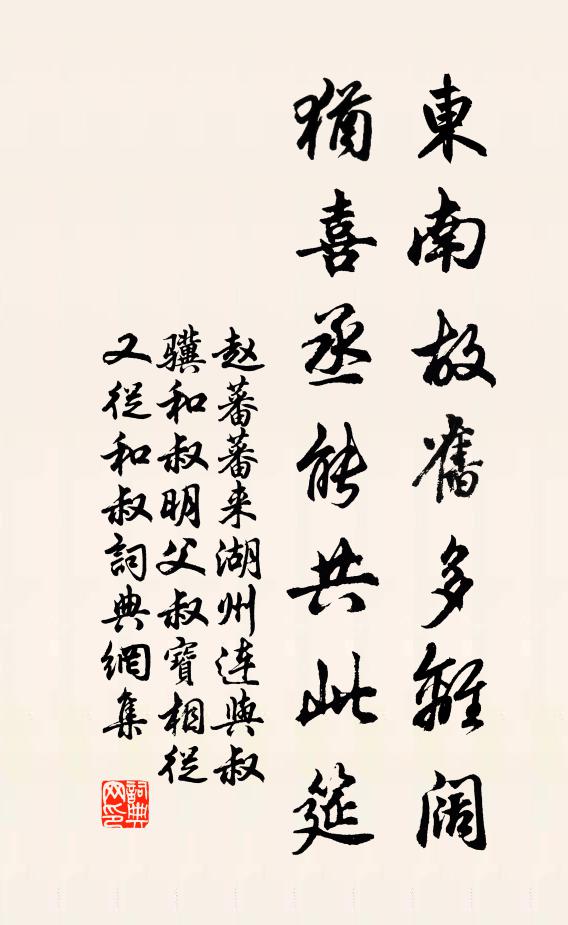 東南故舊多離闊
猶喜丞能共此筵
赵蕃蕃来湖州连與叔
驥和叔明父叔寶相從
又從和叔詞典網集
詞典
网印